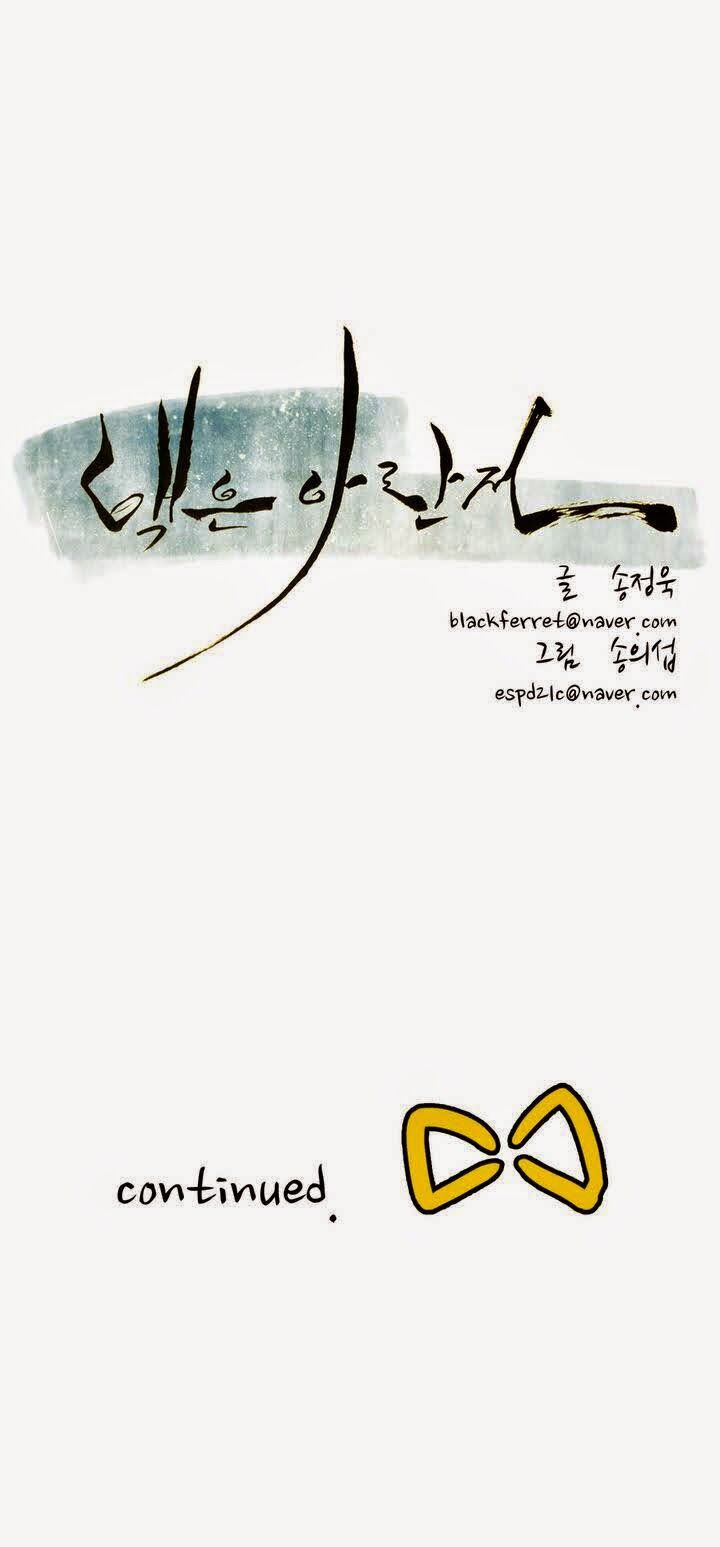 낵은 아란전
글 송정욱
blackferret@naver.com
그림 송의섭
espd21c@naver.com
continued.